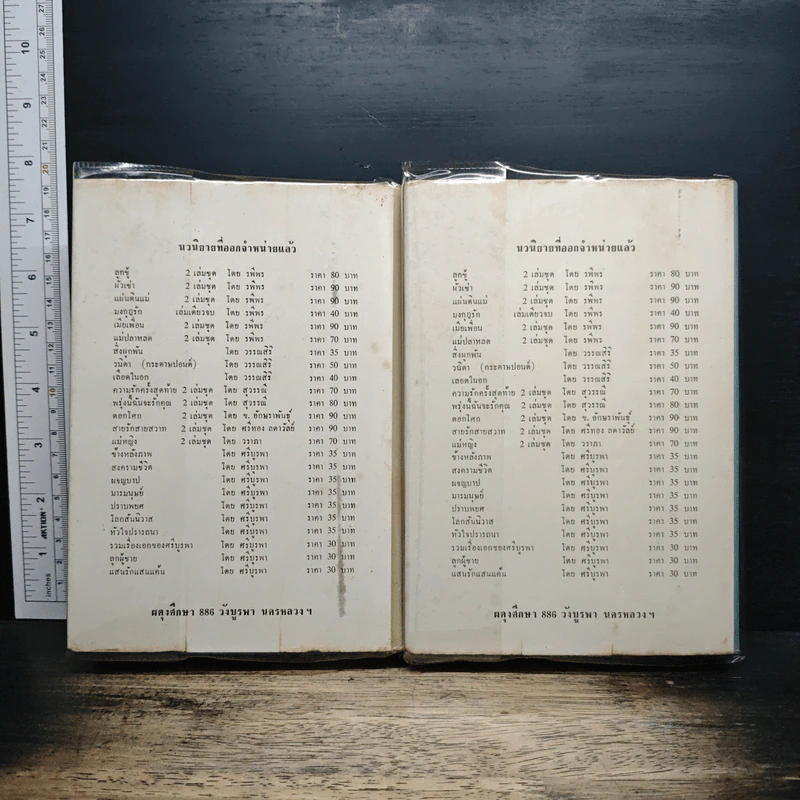 นวนิยายที่ออกจำหน่ายแล้ว
ลูกชู้ 2 เล่มชุด โดย รพีพร ราคา 80 บาท
ผัวเช่า 2 เล่มชุด โดย รพีพร ราคา 90 บาท
แผ่นดินแม่ 2 เล่มชุด โดย รพีพร ราคา 90 บาท
มงกุฎรัก เล่มเดียวจบ โดย รพีพร ราคา 40 บาท
เมียเพื่อน 2 เล่มชุด โดย รพีพร ราคา 90 บาท
แม่ปลาหลด 2 เล่มชุด โดย รพีพร ราคา 70 บาท
สิ่งผูกพัน โดย วรรณสิริ ราคา 35 บาท
วนิดา (กระดาษปอนด์) โดย วรรณสิริ ราคา 50 บาท
เลือดในอก โดย วรรณสิริ ราคา 40 บาท
ความรักครั้งสุดท้าย 2 เล่มชุด โดย สุวรรณี ราคา 70 บาท
พรุ่งนี้ฉันจะรักคุณ 2 เล่มชุด โดย สุวรรณี ราคา 80 บาท
ดอกโศก 2 เล่มชุด โดย ข. อักษราพันธุ์ ราคา 90 บาท
สายรักสายสวาท 2 เล่มชุด โดย ศรีทอง ลดาวัลย์ ราคา 90 บาท
แม่หญิง 2 เล่มชุด โดย วราภา ราคา 70 บาท
ข้างหลังภาพ โดย ศรีบูรพา ราคา 35 บาท
สงครามชีวิต โดย ศรีบูรพา ราคา 35 บาท
ผจญบาป โดย ศรีบูรพา ราคา 35 บาท
มารมนุษย์ โดย ศรีบูรพา ราคา 35 บาท
ปราบพยศ โดย ศรีบูรพา ราคา 35 บาท
โลกสันนิวาส โดย ศรีบูรพา ราคา 35 บาท
หัวใจปรารถนา โดย ศรีบูรพา ราคา 35 บาท
รวมเรื่องเอกของศรีบูรพา โดย ศรีบูรพา ราคา 30 บาท
ลูกผู้ชาย โดย ศรีบูรพา ราคา 30 บาท
แสนรักแสนแค้น โดย ศรีบูรพา ราคา 30 บาท
ผดุงศึกษา 886 วังบูรพา นครหลวง ฯ
นวนิยายที่ออกจำหน่ายแล้ว
ลูกชู้ 2 เล่มชุด โดย รพีพร ราคา 80 บาท
ผัวเช่า 2 เล่มชุด โดย รพีพร ราคา 90 บาท
แผ่นดินแม่ 2 เล่มชุด โดย รพีพร ราคา 90 บาท
มงกุฎรัก เล่มเดียวจบ โดย รพีพร ราคา 40 บาท
เมียเพื่อน 2 เล่มชุด โดย รพีพร ราคา 90 บาท
แม่ปลาหลด 2 เล่มชุด โดย รพีพร ราคา 70 บาท
สิ่งผูกพัน โดย วรรณสิริ ราคา 35 บาท
วนิดา (กระดาษปอนด์) โดย วรรณสิริ ราคา 50 บาท
เลือดในอก โดย วรรณสิริ ราคา 40 บาท
ความรักครั้งสุดท้าย 2 เล่มชุด โดย สุวรรณี ราคา 70 บาท
พรุ่งนี้ฉันจะรักคุณ 2 เล่มชุด โดย สุวรรณี ราคา 80 บาท
ดอกโศก 2 เล่มชุด โดย ข. อักษราพันธุ์ ราคา 90 บาท
สายรักสายสวาท 2 เล่มชุด โดย ศรีทอง ลดาวัลย์ ราคา 90 บาท
แม่หญิง 2 เล่มชุด โดย วราภา ราคา 70 บาท
ข้างหลังภาพ โดย ศรีบูรพา ราคา 35 บาท
สงครามชีวิต โดย ศรีบูรพา ราคา 35 บาท
ผจญบาป โดย ศรีบูรพา ราคา 35 บาท
มารมนุษย์ โดย ศรีบูรพา ราคา 35 บาท
ปราบพยศ โดย ศรีบูรพา ราคา 35 บาท
โลกสันนิวาส โดย ศรีบูรพา ราคา 35 บาท
หัวใจปรารถนา โดย ศรีบูรพา ราคา 35 บาท
รวมเรื่องเอกของศรีบูรพา โดย ศรีบูรพา ราคา 30 บาท
ลูกผู้ชาย โดย ศรีบูรพา ราคา 30 บาท
แสนรักแสนแค้น โดย ศรีบูรพา ราคา 30 บาท
ผดุงศึกษา 886 วังบูรพา นครหลวง ฯ
inches 1 2 3 4 5 6 7 8 9 10